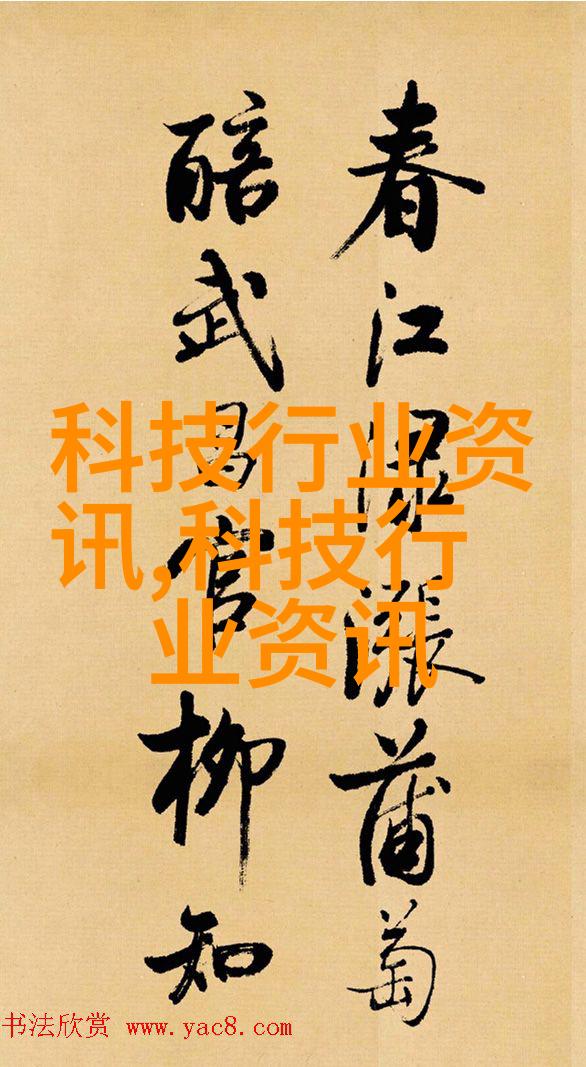 春江渌涨蒲萄
醅武昌官柳知
科技行业资
讯,科技行
业资讯
书法欣赏 www.yac8.com